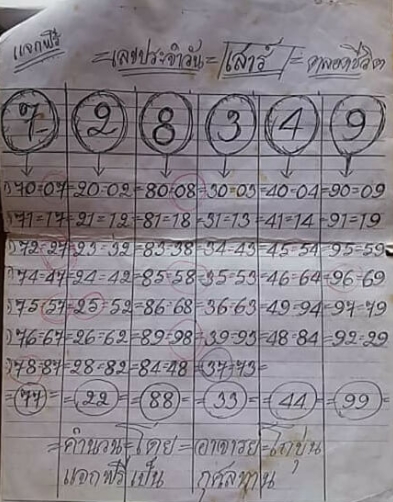 แจกฟรี
=เลขประจำวัน= เสาร์ =ตลอดชีวิต
7 2 8 3 4 9
70=07=20=02=80=08=30=03=40=04=90=09
71=17=21=12=81=18=31=13=41=14=91=19
72=27=23=32=83=38=34=43=45=54=95=59
74=47=24=42=85=58=35=53=46=64=96=69
75=57=25=52=86=68=36=63=49=94=97=79
76=67=26=62=89=98=39=93=48=84=92=29
78=87=28=82=84=48=37=73=
=77= =22= =88= =33= =44= =99=
=คำนวน=โดย=อาจารย์=
แจกฟรีเป็น กุศลทาน